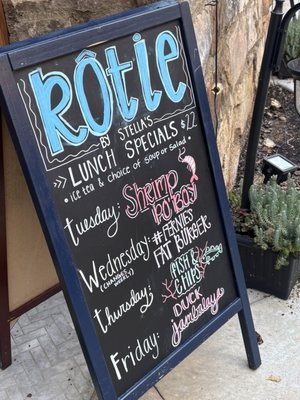 RôTie
BY STELLA'S
LUNCH SPECIALS $22
• ICE TEA & CHOICE OF SOUP OR SALAD •
Tuesday: Shrimp
PO'BOY
Wednesday: #FERNIES
(CHANGES WEEKLY) FAT BURGER
Thursday: FISH &
CHIPS
Friday: DUCK
Jambalaya